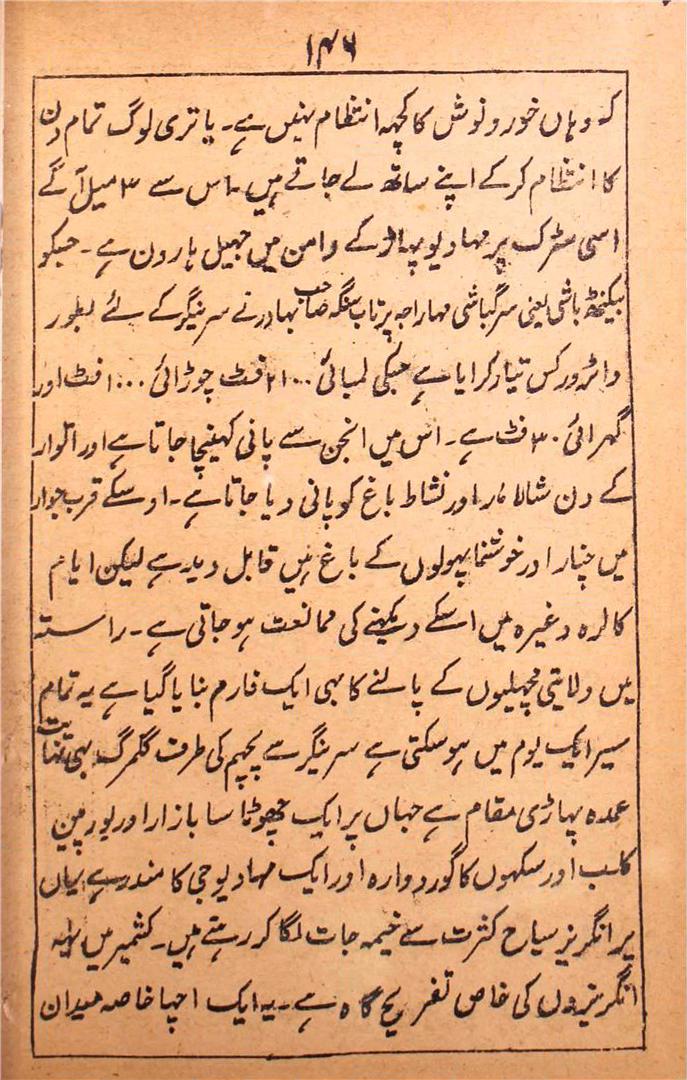 ۱۴۶
کہ وہاں خور و نوش کا کچہہ انتظام نہیں ہے۔ یاتری لوگ تمام دن
کا انتظام کر کے اپنے ساتھ لے جاتے ہیں۔ اس سے ۳ میل آگے
اسی سٹرک پر مہادیو پہاڑ کے دامن میں جہیل ہارون ہے۔ جسکو
بیکنٹھ باشی یعنی سرگباشی مہاراجہ پرتاب سنگہ صاحب بہادر نے سرینگر کے لئے بطور
واٹر ورکس تیار کرایا ہے جسکی لمبائی ۲۱۰۰ فٹ چوڑائی ۱۰۰۰ فٹ اور
گہرائی ۳۰ فٹ ہے۔ اس میں انجن سے پانی کہینچا جاتا ہے اور اتوار
کے دن شالامار اور نشاط باغ کو پانی دیا جاتا ہے۔ اوسکے قرب جوار
میں چنار اور خوشنما پہولوں کے باغ ہیں قابل دید ہے لیکن ایام
کالرہ وغیرہ میں اسکے دیکہنے کی ممانعت ہو جاتی ہے۔ راستہ
میں ولایتی مچہلیوں کے پالنے کا بہی ایک فارم بنایا گیا ہے یہ تمام
سیر ایک یوم میں ہو سکتی ہے سرینگر سے پچہم کی طرف گلمرگ بہی نہایت
عمدہ پہاڑی مقام ہے جہاں پر ایک چھوٹا سا بازار اور یورپین
کلب اور سکہوں کا گوردوارہ اور ایک مہادیو جی کا مندر ہے یہاں
پر انگریز سیاح کثرت سے خیمہ جات لگا کر رہتے ہیں۔ کشمیر میں یہہ
انگریزوں کی خاص تفریح گاہ ہے۔ یہ ایک اچہا خاصہ میدان